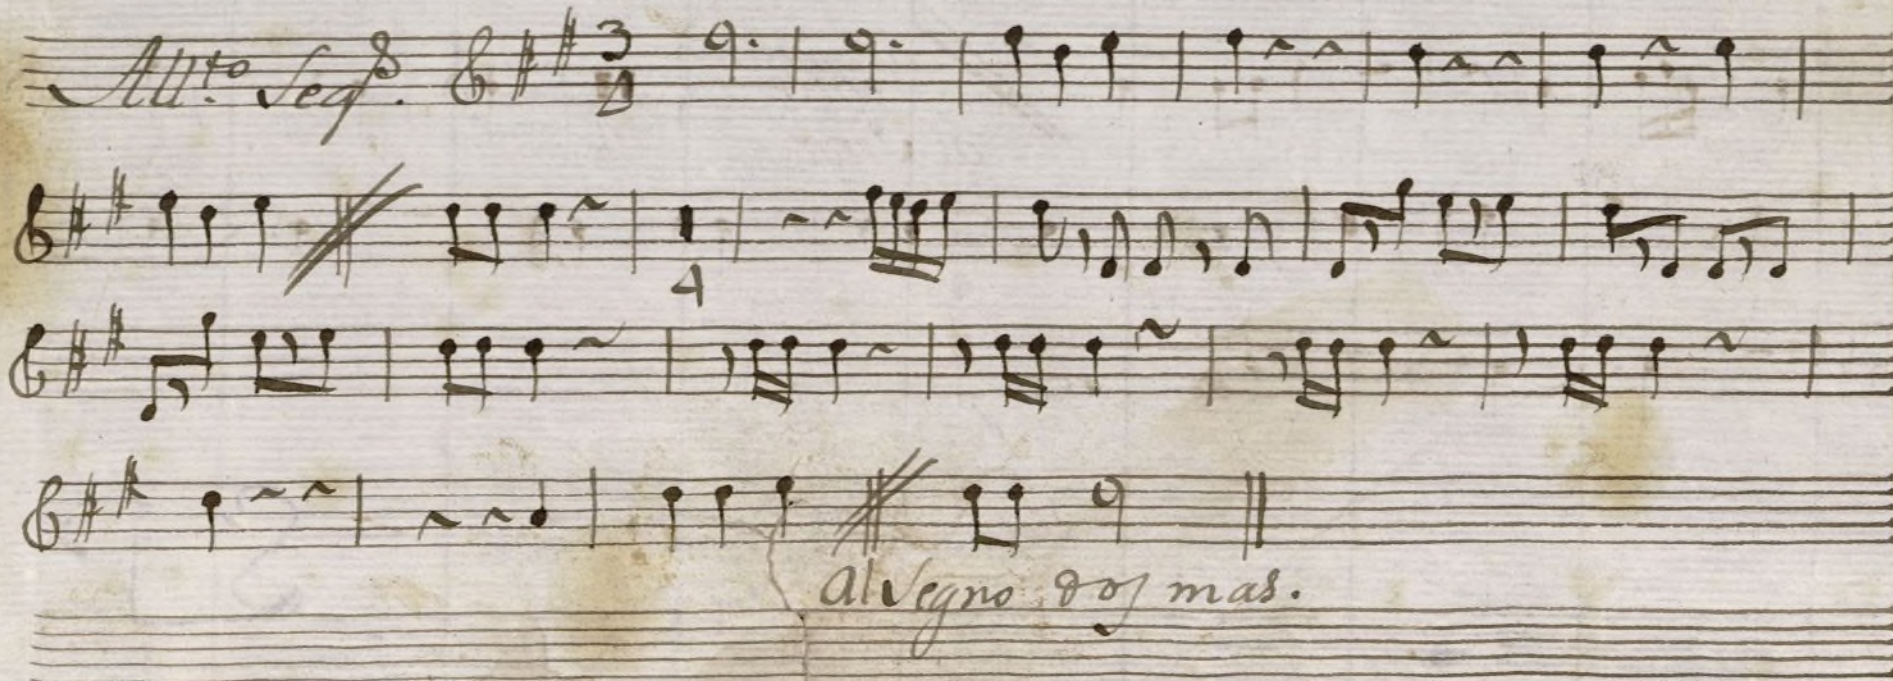 All.to Seg.s 3 4
4
al Segno dos mas.